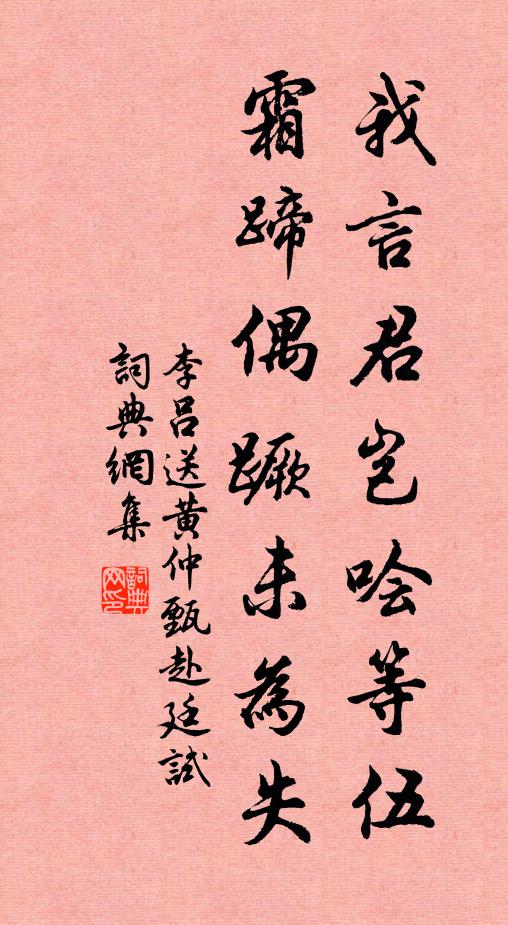 我言君豈噲等伍
霜蹄偶蹶未為失
李呂送黃仲甄赴廷試
詞典網集
詞典网印